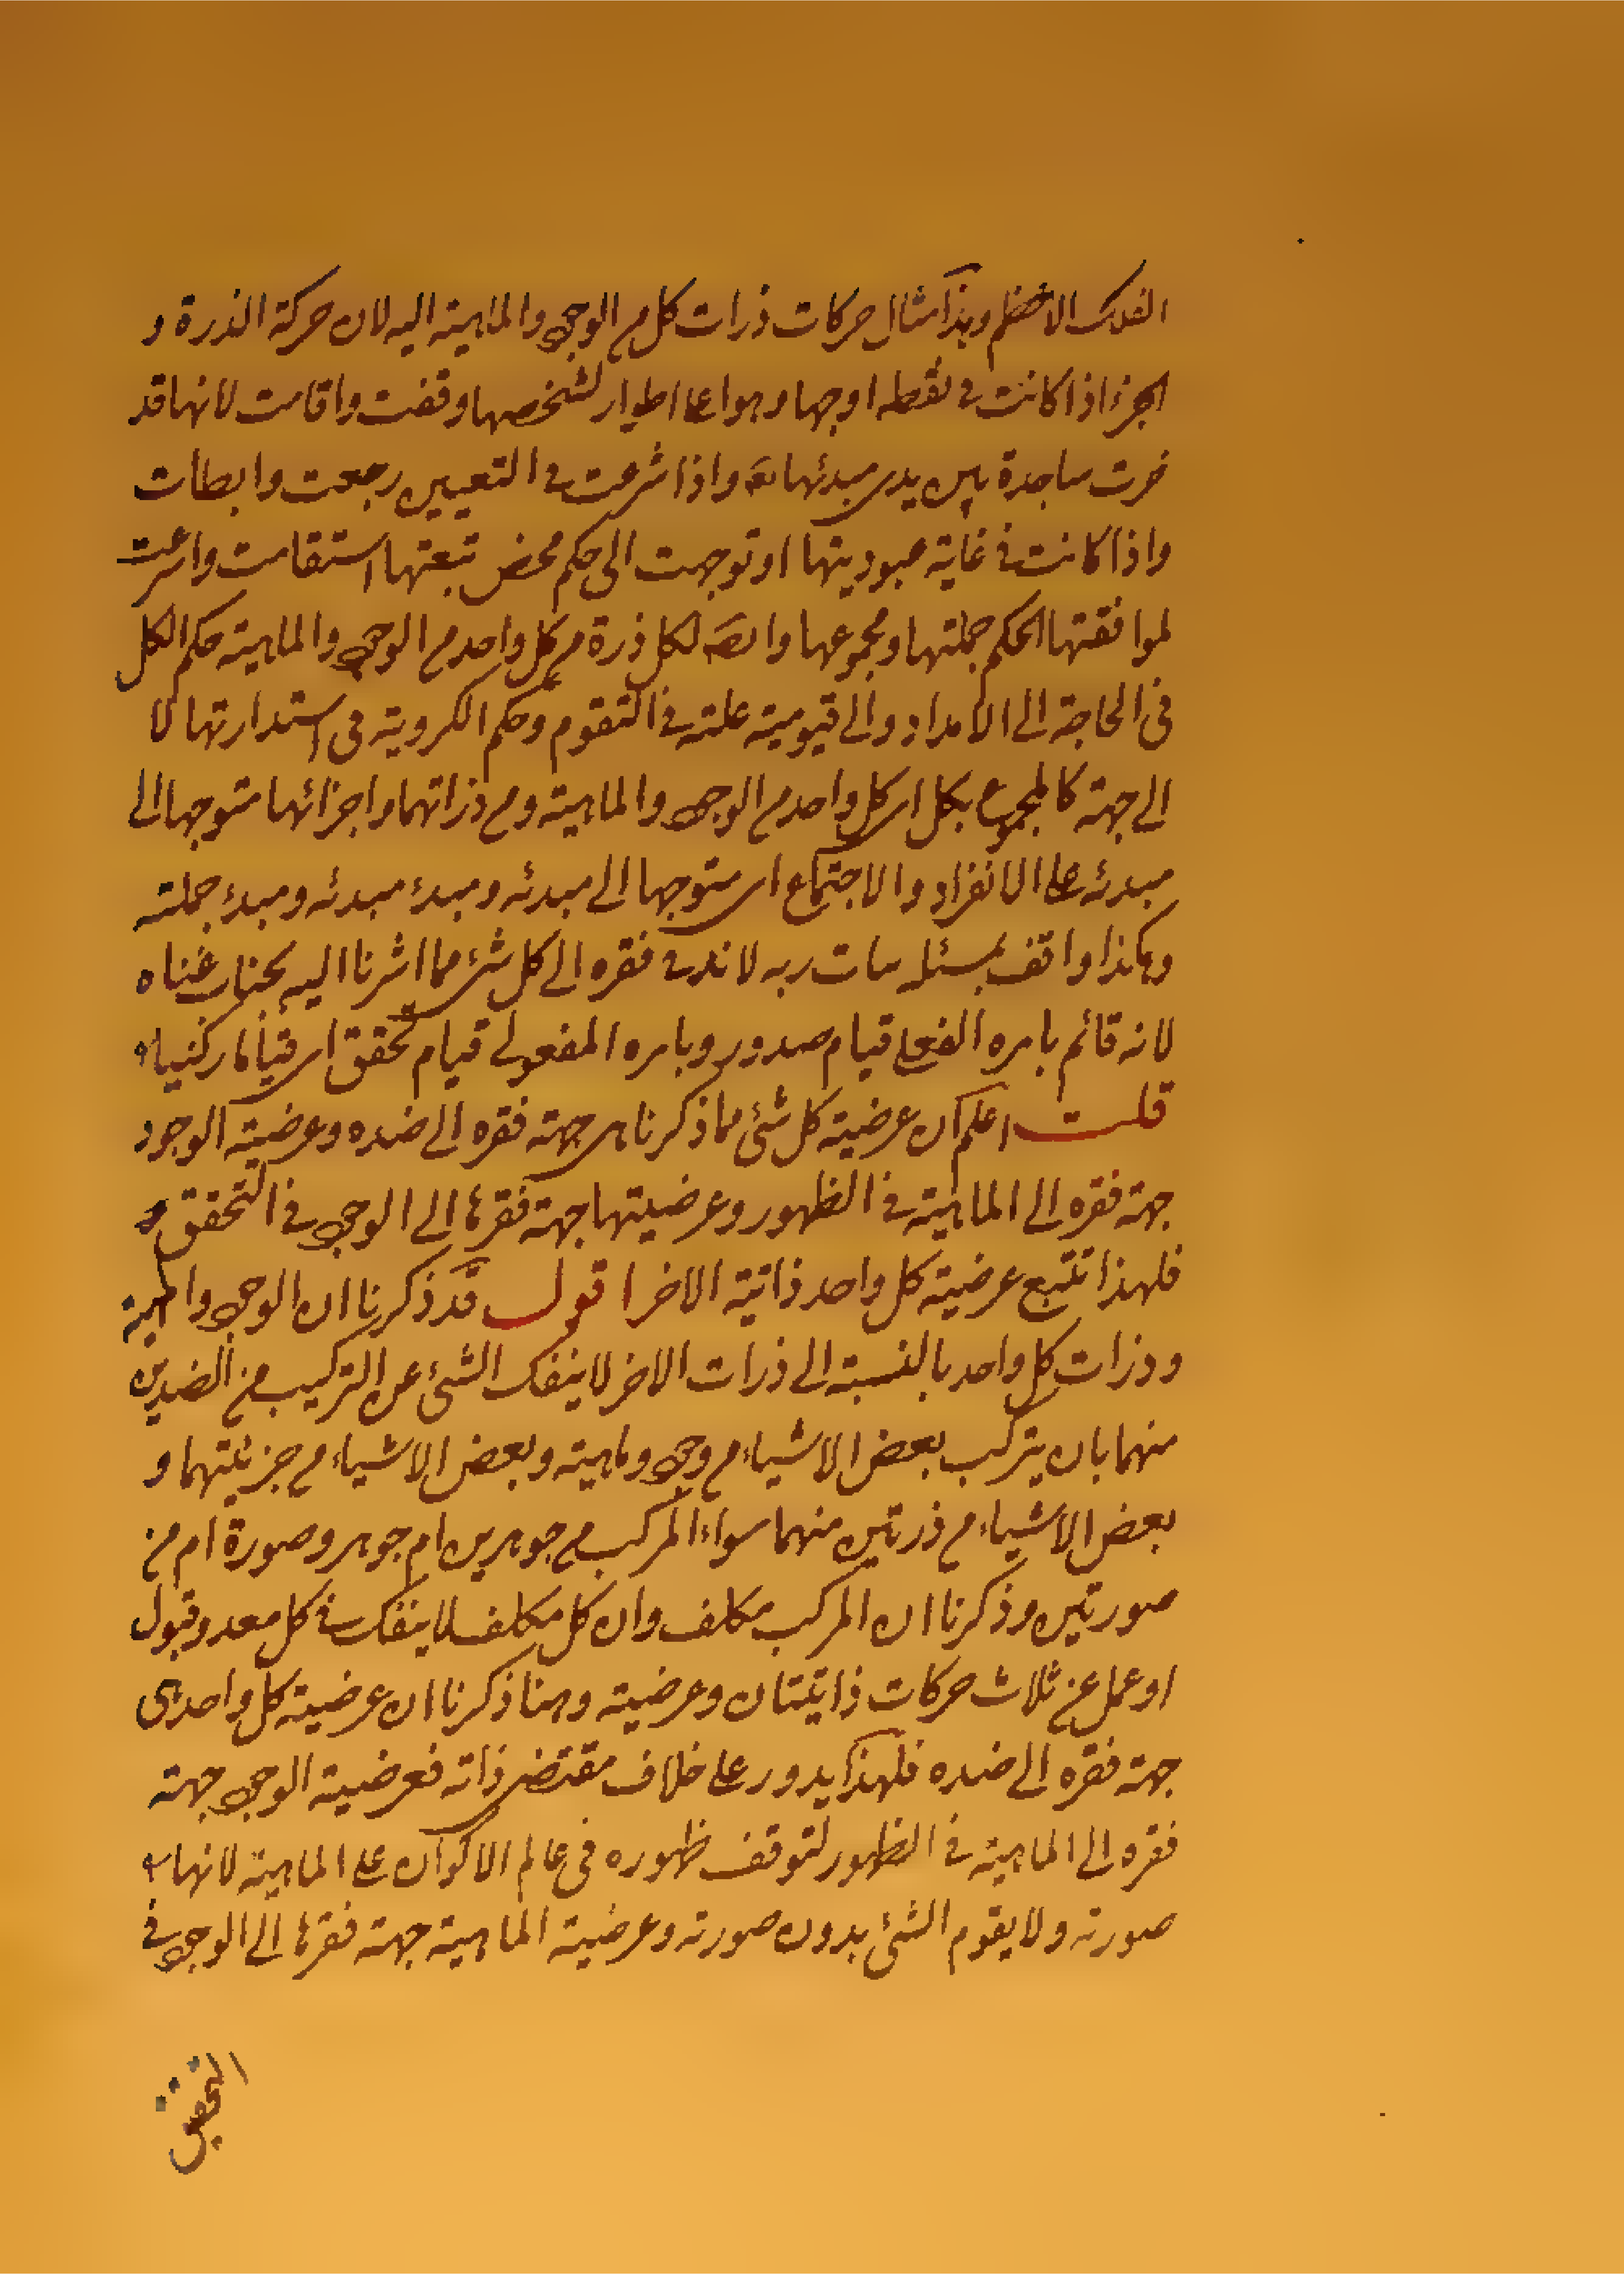 الفلك الاعظم وهذا مثال حركات ذرات كل م الوجى والماهية اليه لان حركة الذرة و
الجزء اذا كانت فى نقطه اوجها وهو اعلا اطوار تشخصها وقفت واقامت لانها قد
خرت ساجدة بين يدى مبدئها تعه واذا شرعت فى التعيين رجعت وابطات
واذا كانت فى غاية عبوديتها او توجهت الى حكم محض تبعتها استقامت واسرعت
لموافقتها الحكم جملتها ومجموعها وايضه لكل ذرة م كل واحد م الوجى والماهية حكم الكل
فى الحاجة الى الامداد والى قيومية علته فى التقوم وحكم الكروية فى استدارتها لا
الى جهة كالمجموع بكل اى كل واحد م الوجى والماهية وم ذراتهما واجزائها متوجها الى
مبدئه على الانفراد والاجتماع اى متوجها الى مبدئه ومبدء مبدئه ومبدء جملته
وهكذا واقف بمسئله سات ربه لائذ فى فقره الى كل شئ مما اشرنا اليه بجناب غناه
لانه قائم بامره الفعلى قيام صدور وبامره المفعولى قيام تحقق اى قياما ركنيا
قلت اعلم ان عرضية كل شئ مما ذكرنا هى جهة فقره الى ضده وعرضية الوجود
جهة فقره الى الماهية فى الظهور وعرضيتها جهة فقرها الى الوجى فى التحقق و
فلهذا تتبع عرضية كل واحد ذاتية الاخر اقول قد ذكرنا ان الوجى والمهية
وذرات كل واحد بالنسبة الى ذرات الاخر لا ينفك الشئ عن التركيب من الضدين
منهما بان يتركب بعض الاشياء م وجى وماهية وبعض الاشياء م جزئيتهما و
بعض الاشياء م ذرتين منهما سواء المركب م جوهرين ام جوهر وصورة ام من
صورتين وذكرنا ان المركب مكلف وان كل مكلف لا ينفك فى كل معد وقبول
او عمل عن ثلاث حركات ذاتيتان وعرضية وهنا ذكرنا ان عرضية كل واحد هى
جهة فقره الى ضده فلهذا يدور على خلاف مقتضى ذاته فعرضية الوجى جهة
فقره الى الماهية فى الظهور لتوقف ظهوره فى عالم الاكوان على الماهية لانها
صورته ولا يقوم الشئ بدون صورته وعرضية الماهية جهة فقرها الى الوجى فى
التحقق